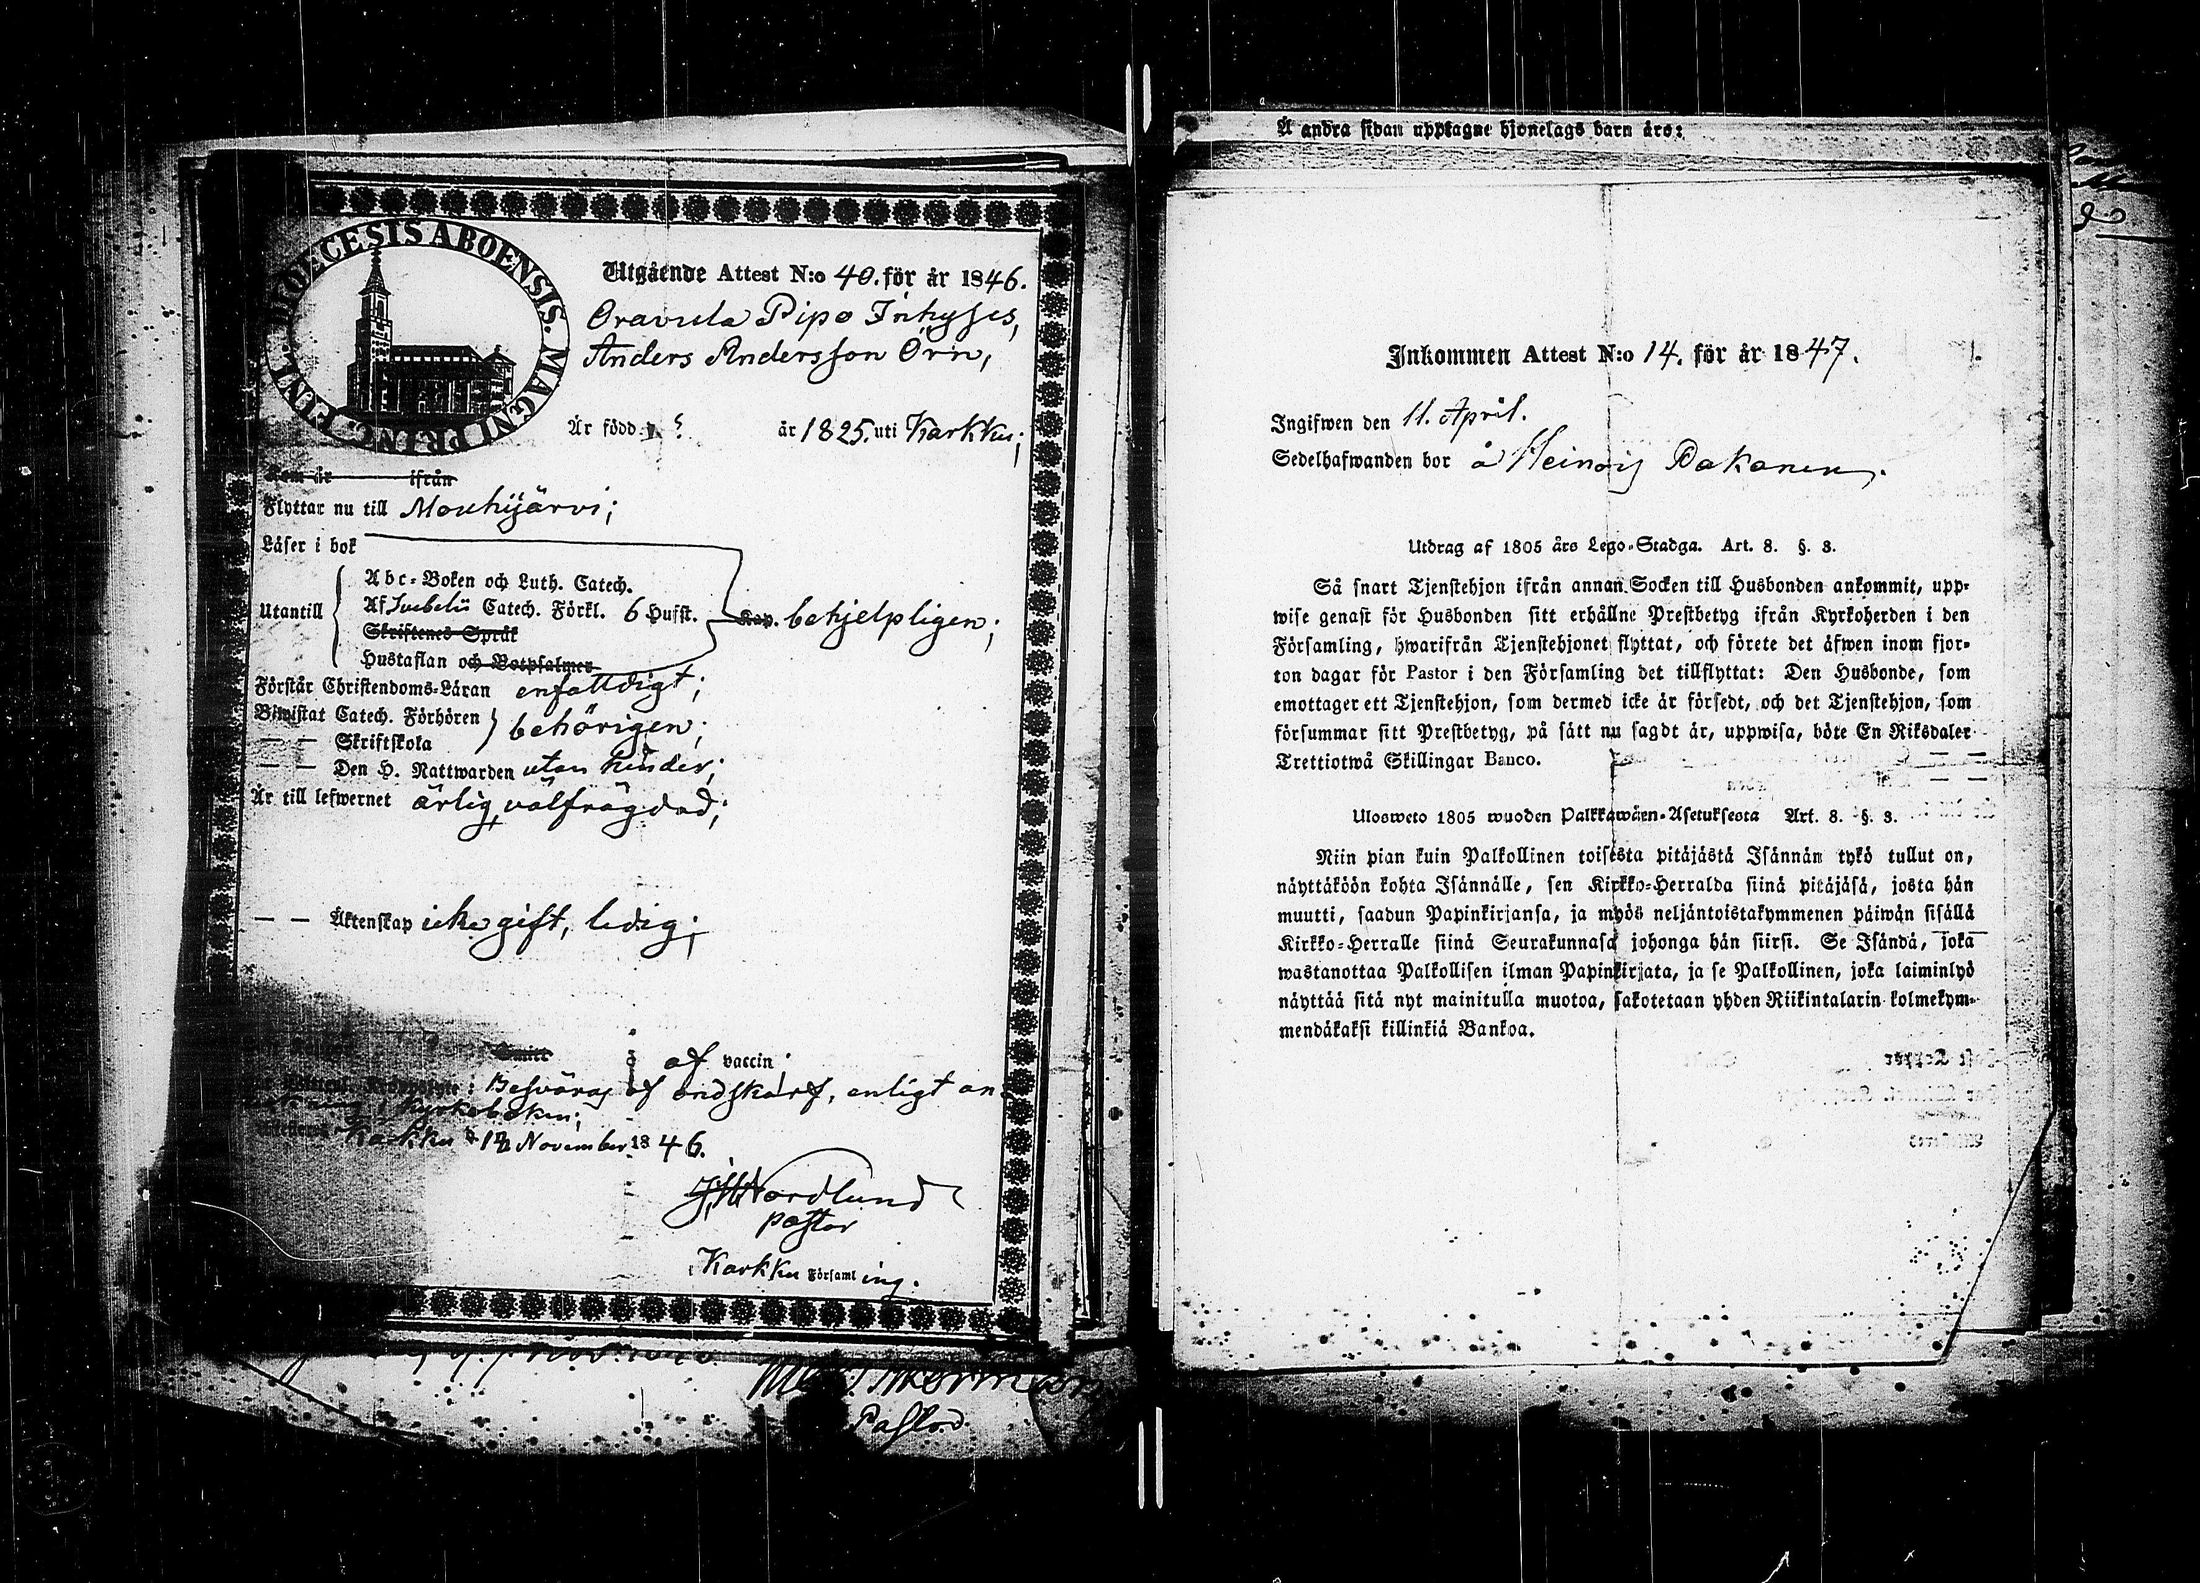 DIOECESIS ABOENSIS. MAGNI PRINC. FINL.
Utgående Attest N:o 40. för år 1846.
Oravula Pipo Inhyses,
Anders Andersson Örn,
Är född ? år 1825. uti Karkku;
Kom år ifrån
Flyttar nu till Mouhijärvi;
Läser i bok
Utantill
Abc-Boken och Luth. Catech.
Af Svebelii Catech. Förkl. 6 Hufst. Kap. behjelpligen;
Skriftenes Språk
Hustaflan och Botpsalmer
Förstår Christendoms-Läran enfaldigt;
Biwistat Catech. Förhören
— — Skriftskola behörigen;
— — Den H. Nattwarden utan hinder;
Är till lefwernet ärlig, välfrägdad;
— — Äktenskap icke gift, ledig;
af vaccin;
Besväras af ondskarf, enligt an
i kyrkoboken;
Karkku d. 18 November 1846.
Nordlund
pastor
i Karkku Församling.
Pastor
Å andra sidan upptagne hjonelags barn äro:
Inkommen Attest N:o 14. för år 1847.
Ingifwen den 11. April.
Sedelhafwanden bor å Heinoij Pakanen.
Utdrag af 1805 års Lego-Stadga. Art. 8. §. 3.
Så snart Tjenstehjon ifrån annan Socken till Husbonden ankommit, upp-
wise genast för Husbonden sitt erhållne Prestbetyg ifrån Kyrkoherden i den
Församling, hwarifrån Tjenstehjonet flyttat, och förete det äfwen inom fjor-
ton dagar för Pastor i den Församling det tillflyttat: Den Husbonde, som
emottager ett Tjenstehjon, som dermed icke är försedt, och det Tjenstehjon, som
försummar sitt Prestbetyg, på sätt nu sagdt är, uppwisa, böte En Riksdaler
Trettiotwå Skillingar Banco.
Ulosweto 1805 wuoden Palkkawäen-Asetuksesta Art. 8. §. 3.
Niin pian kuin Palkollinen toisesta pitäjästä Isännän tykö tullut on,
näyttäköön kohta Isännälle, sen Kirkko-Herralda siinä pitäjäsä, josta hän
muutti, saadun Papinkirjansa, ja myös neljäntoistakymmenen päiwän sisällä
Kirkko-Herralle siinä Seurakunnasa johonga hän siirsi. Se Isändä, joka
wastanottaa Palkollisen ilman Papinkirjata, ja se Palkollinen, joka laiminlyö
näyttää sitä nyt mainitulla muotoa, sakotetaan yhden Riikintalarin kolmekym-
mendäkaksi killinkiä Bankoa.